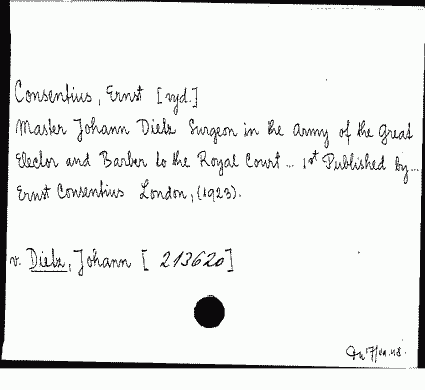 Consentius, Ernst [vyd.]
Master Johann Dietz Surgeon in the Army of the Great
Elector and Barber to the Royal Court... 1st Published by...
Ernst Consentius London, (1923).
v. Dietz, Johann [213620]